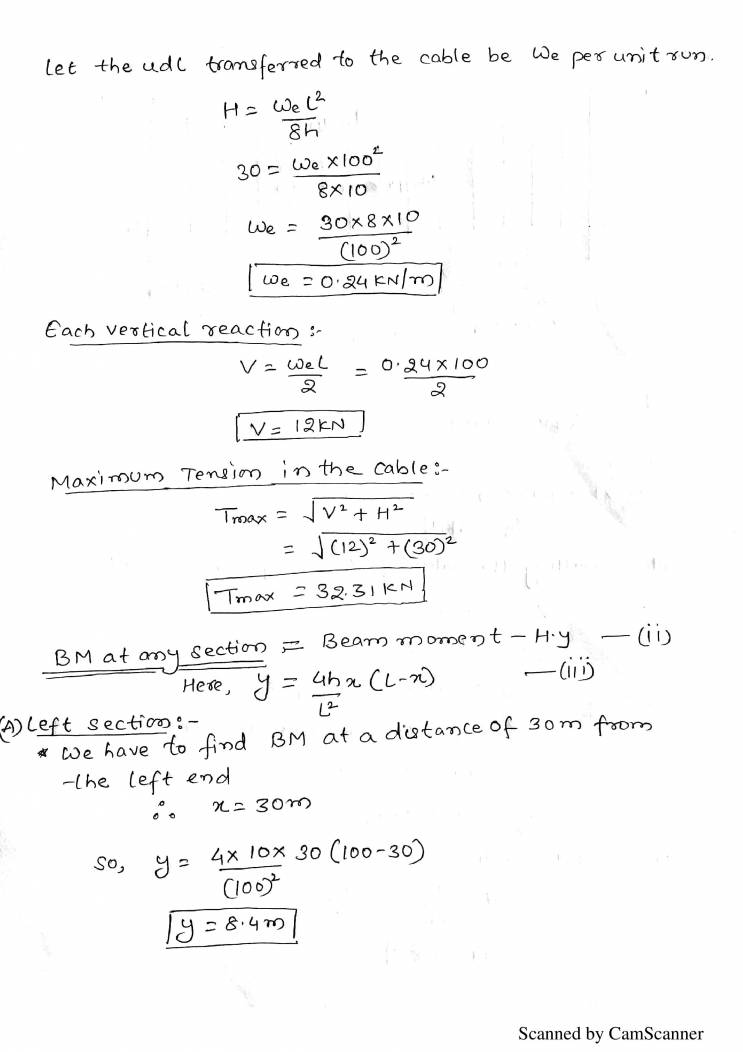 Let the udl transferred to the cable be We per unit run.
H = We L²/8h
30 = We × 100²/8×10
We = 30×8×10/(100)²
We = 0.24 KN/m
Each vertical reaction :-
V = We L/2 = 0.24×100/2
V = 12KN
Maximum Tension in the cable:-
Tmax = √V² + H²
= √(12)² + (30)²
Tmax = 32.31 KN
BM at any section = Beam moment - H·y — (ii)
Here, y = 4hx (L-x)/L² — (iii)
(A) Left section:-
* We have to find BM at a distance of 30m from
the left end
∴ x = 30m
So, y = 4× 10× 30 (100-30)/(100)²
y = 8.4m
Scanned by CamScanner